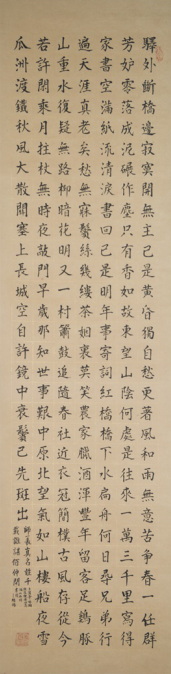 驛外斷橋邊寂寞開無主已是黃昏獨自愁更著風和雨無意苦爭春一任群
芳妒零落成泥碾作塵只有香如故東望山陰何處是往來一萬三千里寫得
家書空滿紙流清淚書回已是明年事寄詞紅橋橋下水扁舟何日尋兄弟行
遍天涯真老矣愁無寐鬢絲幾縷茶煙裏莫笑農家臘酒渾豐年留客足雞豚
山重水復疑無路柳暗花明又一村簫鼓追隨春社近衣冠簡樸古風存從今
若許閑乘月拄杖無時夜敲門早歲那知世事艱中原北望氣如山樓船夜雪
瓜洲渡鐵秋風大散關塞上長城空自許鏡中衰鬢已先斑出
師表真名世千
載誰堪伯仲間